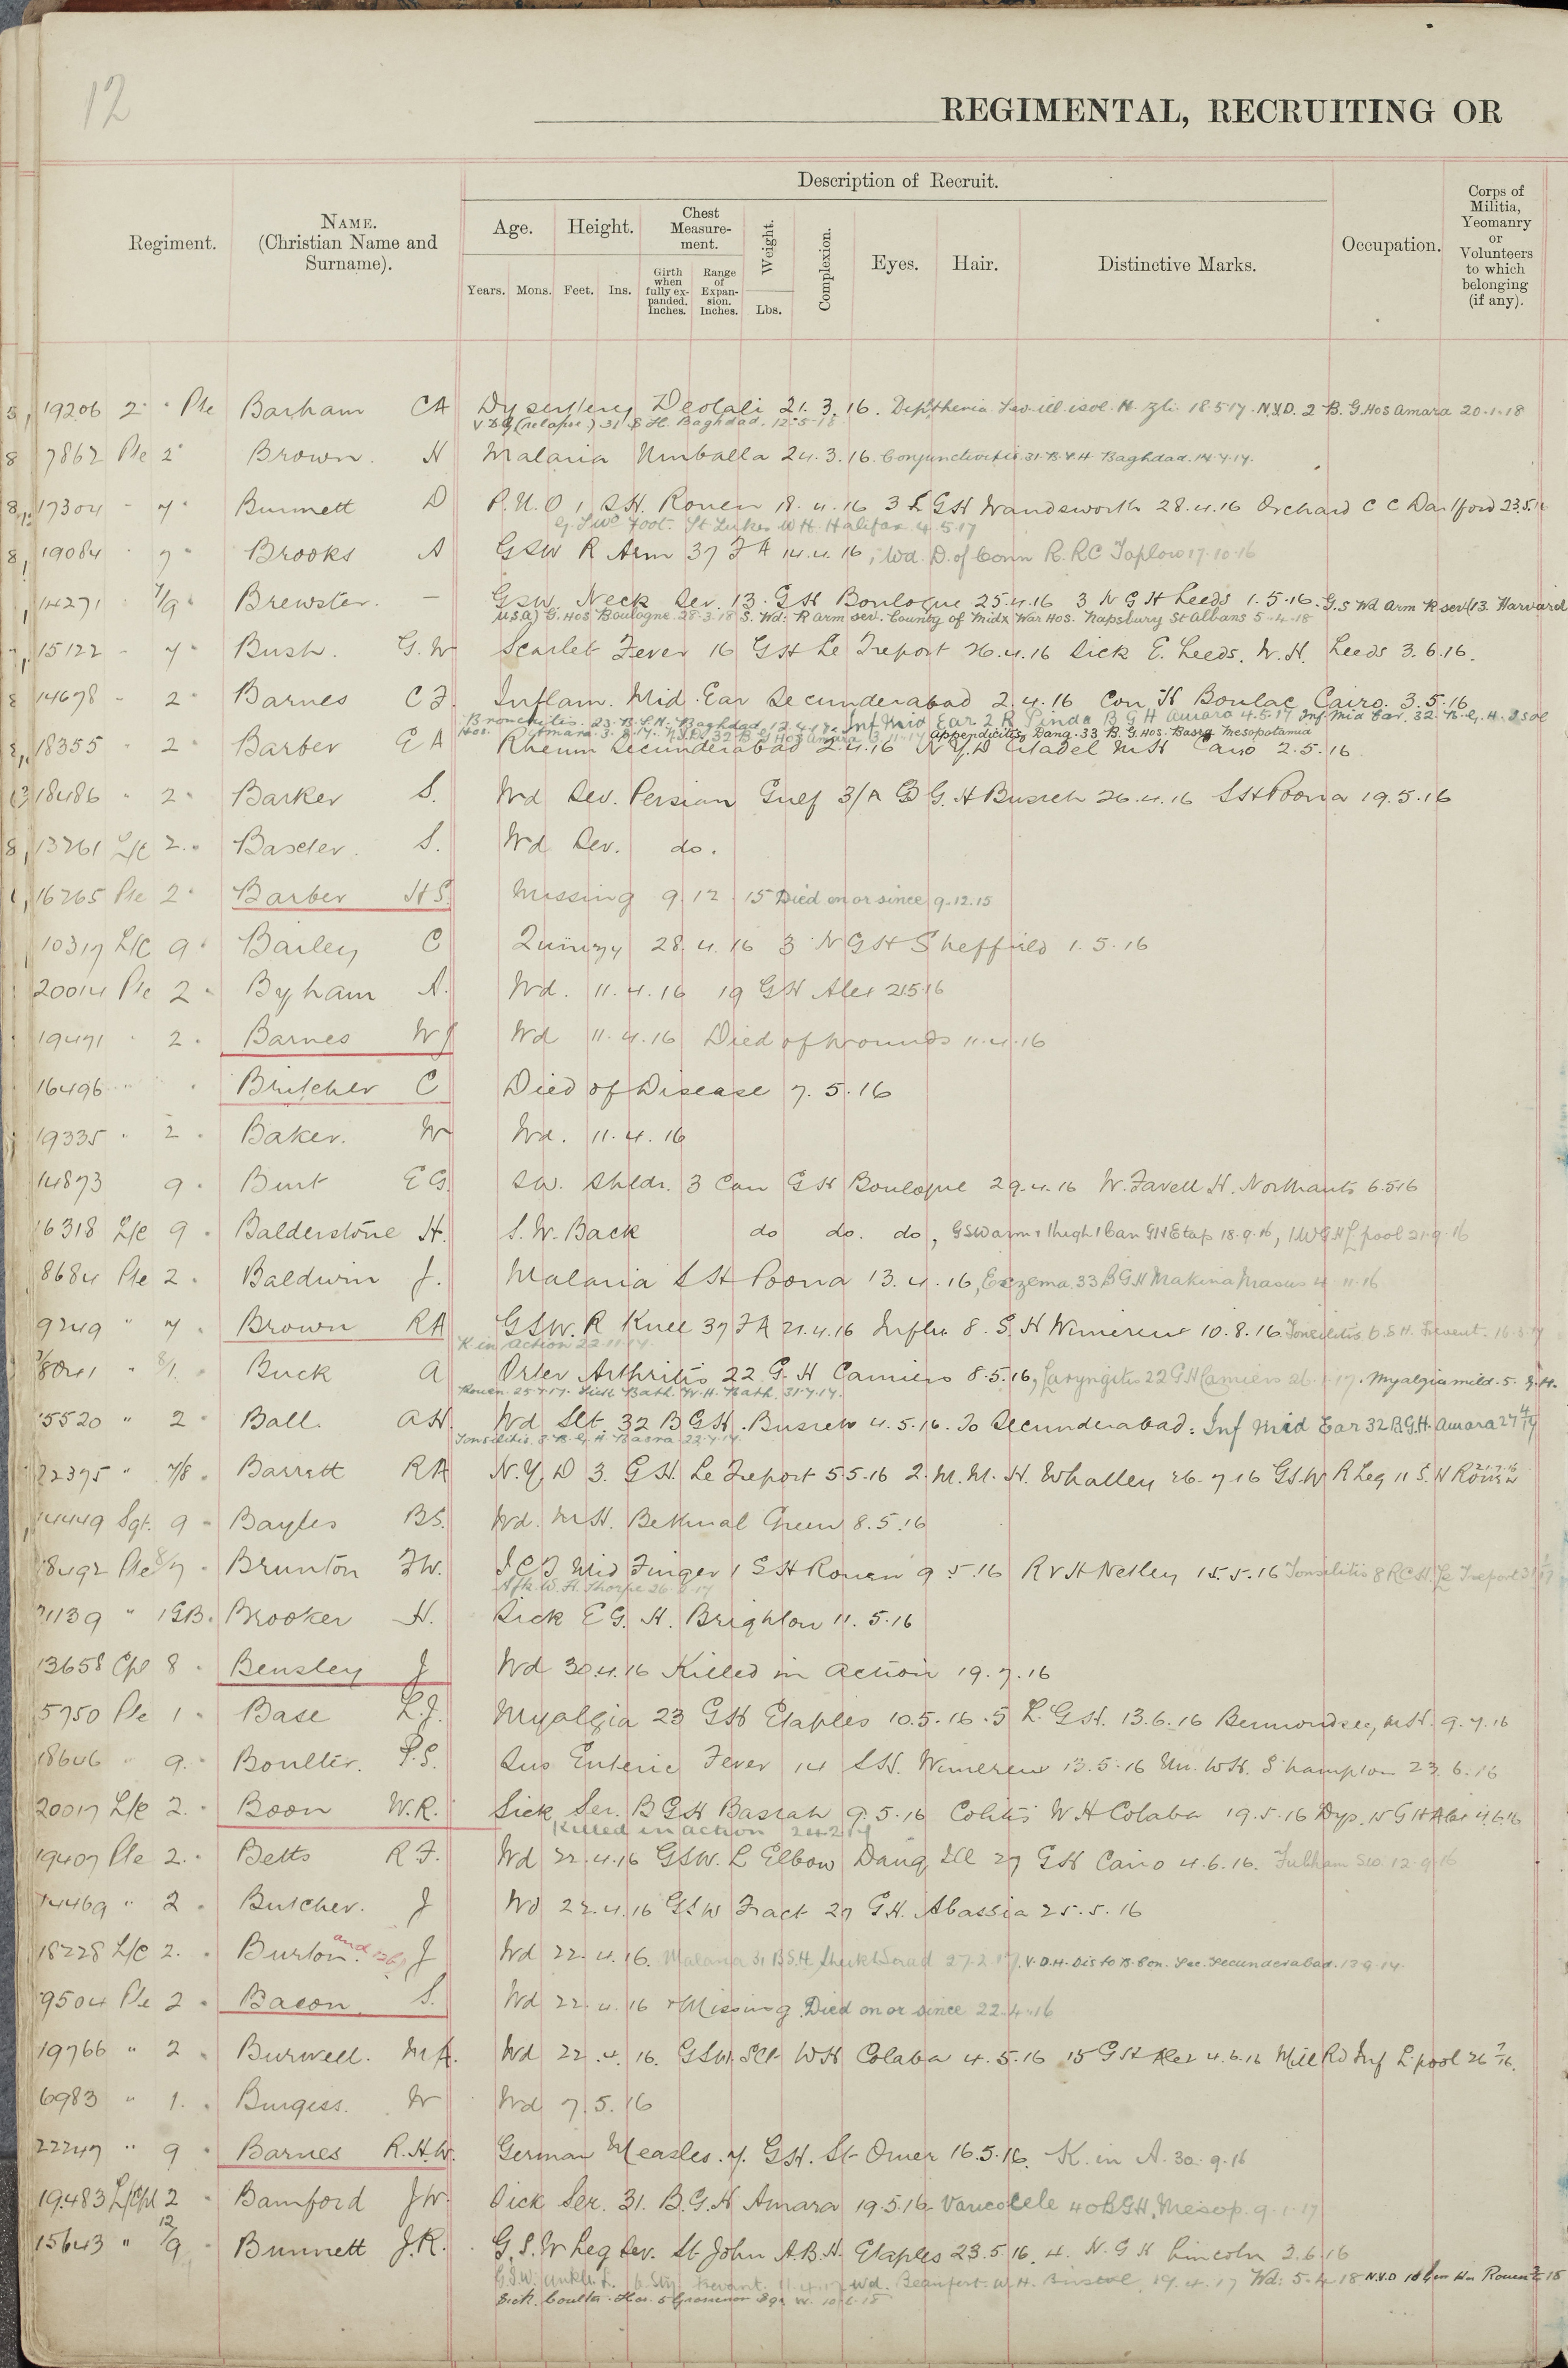 12
REGIMENTAL, RECRUITING OR
Regiment.
NAME.
(Christian Name and
Surname).
Description of Recruit.
Age.
Height.
Chest
Measure-
ment.
Weight.
Complexion.
Eyes.
Hair.
Distinctive Marks.
Occupation.
Corps of
Militia,
Yeomanry
or
Volunteers
to which
belonging
(if any).
Years.
Mons.
Feet.
Ins.
Girth
when
fully ex-
panded.
Inches.
Range
of
Expan-
sion.
Inches.
Lbs.
19206 2 " Pte Barham CA Dysentery Deolali 21.3.16. Diphtheria isol. H. 18.5.17. N.Y.D. 2 B.G.Hos Amara 20.1.18
(relapse) 31 Baghdad. 12.5.18
7862 Pte 2 " Brown. H Malaria Umballa 24.3.16. Conjunctivitis 31.B.S.H. Baghdad. 14.7.17.
17304 " 7 " Burnett D P.U.O 1 S.H. Rouen 18.4.16 3 L GH Wandsworth 28.4.16 Orchard C C Dartford 23.5.16
Foot. St Lukes W.H. Halifax 4.5.17
19084 " 7 " Brooks A GSW R Arm 37 FA 14.4.16, Wd. D. of Conn R. RC Taplow 17.10.16
14271 " 7/9 " Brewster. — GSW. Neck Sev. 13 GH Boulogne 25.4.16 3 N G H Leeds 1.5.16. G.S Wd Arm R sev (13 Harvard
USA) G. Hos Boulogne 28.3.18 S. Wd: R arm sev. County of Midx War Hos. Napsbury St Albans 5.4.18
15122 " 7 " Bush. G.W Scarlet Fever 16 GH Le Treport 26.4.16 Sick E. Leeds. W.H. Leeds 3.6.16.
14678 " 2 " Barnes C F. Inflam. Mid Ear Secunderabad 2.4.16 Con H Boulac Cairo. 3.5.16
Bronchitis. 23.B.S.H. Baghdad 12.4.17. Inf Mid Ear 2 R Pindi B G H Amara 4.5.17 Inf Mid Ear. 32 B.G.H. Isol
Hos. Amara. 3.8.17. N.Y.D. 32 B G Hos Amara 3.11.17 Appendicitis Dang. 33 B.G.Hos. Basra Mesopotamia
18355 " 2 " Barber E A Rheum Secunderabad 2.4.16 N Y.D Citadel M H Cairo 2.5.16
18486 " 2 " Barker S. Wd Sev. Persian Gulf 3/A B G.H Busreh 26.4.16 S H Poona 19.5.16
13261 L/C 2. " Baxter. S. Wd Sev. do.
16265 Pte 2 " Barber H S. Missing 9.12.15 Died on or since 9.12.15
10317 L/C 9 " Bailey C Quinzy 28.4.16 3 N G H Sheffield 1.5.16
20014 Pte 2 " Byham A. Wd. 11.4.16 19 GH Alex 2.5.16
19471 " 2 " Barnes W J Wd 11.4.16 Died of wounds 11.4.16
16496 " Butcher C Died of Disease 7.5.16
19335 " 2 " Baker. W Wd. 11.4.16
14873 9 " Burt E G. SW. Shldr. 3 Can GH Boulogne 29.4.16 W. Favell H. Northants 6.5.16
16318 L/C 9 " Balderstone H. S.W. Back do do. do, GSW arm & thigh 1 Can GH Etap 18.9.16, 1 W G H L'pool 21.9.16
8684 Pte 2 " Baldwin J. Malaria S H Poona 13.4.16, Eczema. 33 B G H Makina Masus 4.11.16
9249 " 7 " Brown RA GSW. R Knee 37 FA 21.4.16 Influ. 8. S. H Wimereux 10.8.16. Tonsilitis 6 S.H. Frevent.
K in Action 22.11.17.
" 8/1. Buck A Osteo Arthritis 22 G. H Camiers 8.5.16, Laryngitis 22 GH Camiers Myalgia mild. 5. G.H.
Rouen. 25.7.17. Sick Bath W.H. Bath. 31.7.17.
15520 " 2 " Ball. A H. Wd Slt. 32 B G H. Busreh 4.5.16. To Secunderabad: Inf Mid Ear 32 B.G.H. Amara
Tonsilitis. 3.B.G.H. Basra 22.7.17.
22375 " 7/8 " Barrett RA N.Y.D 3. G H. Le Treport 5.5.16 2. M. M. H. Whalley 26.7.16 GSW R Leg 11 S. H Rouen
14449 Sgt. 9 " Bayles B S. Wd. M H. Bethnal Green 8.5.16
18492 Pte 8/7 " Brunton F W. I C T Mid Finger 1 S H Rouen 9.5.16 R V H Netley 15.5.16 Tonsilitis 8 RC.H. Le Treport
W.H. Thorpe
" 1 GB. Brooker H. Sick E G. H. Brighton 11.5.16
13658 Cpl 8 " Bensley J Wd 30.4.16 Killed in action 19.7.16
5750 Pte 1 " Base L.J. Myalgia 23 GH Etaples 10.5.16. 5 L. GH. 13.6.16 Bermondsey M H. 9.7.16
18646 " 9. " Boulter. P.S. Sus Enteric Fever 14 S H. Wimereux 13.5.16 Un. WH. S'hampton 23.6.16
20017 L/C 2. " Boon W.R. Sick Ser. B G H Basrah 9.5.16 Colitis W H Colaba 19.5.16 Dys. 15 G H Alex 4.6.16
Killed in action
19407 Pte 2. " Betts R F. Wd 22.4.16 GSW. L Elbow Dang Ill 27 GH Cairo 4.6.16. Fulham 12.9.16
14469 " 2 " Butcher. J Wd 22.4.16 GSW Fract 27 G H. Abassia 25.5.16
18228 L/C 2. " Burton. J Wd 22.4.16. Malaria 31 B.S.H. Sheikh Saad 27.2.17. V.D.H. Dis to B. Con. Sec. Secunderabad. 13.9.17.
9504 Pte 2 " Bacon. S. Wd 22.4.16 & Missing. Died on or since 22.4.16
19766 " 2 " Burwell. M A. Wd 22.4.16. GSW. Slt W H Colaba 4.5.16 15 G H Alex 4.6.16 Mill Rd Inf L'pool
6983 " 1. " Burgess. W Wd 7.5.16
22247 " 9 " Barnes R.H.W. German Measles. 7. GH. St Omer 16.5.16. K. in A. 30.9.16
19483 L/Cpl 2 " Bamford J W. Sick Ser. 31. B.G.H Amara 19.5.16 Varicocele 40 BGH. Mesop. 9.1.17
15643 " 12/9 " Bunnett J.R. G.S.W Leg Sev. St John A.B.H. Etaples 23.5.16. 4. N. G H Lincoln 3.6.16
G.S.W. Ankle L. 6. Sty. Frevent. 11.4.17 Wd. Beaufort. W.H. Bristol 19.4.17 Wd: 5.4.18 N.Y.D Rouen
Sick. Coulter Hos. 5 Grosvenor Sqr W. 10.6.18